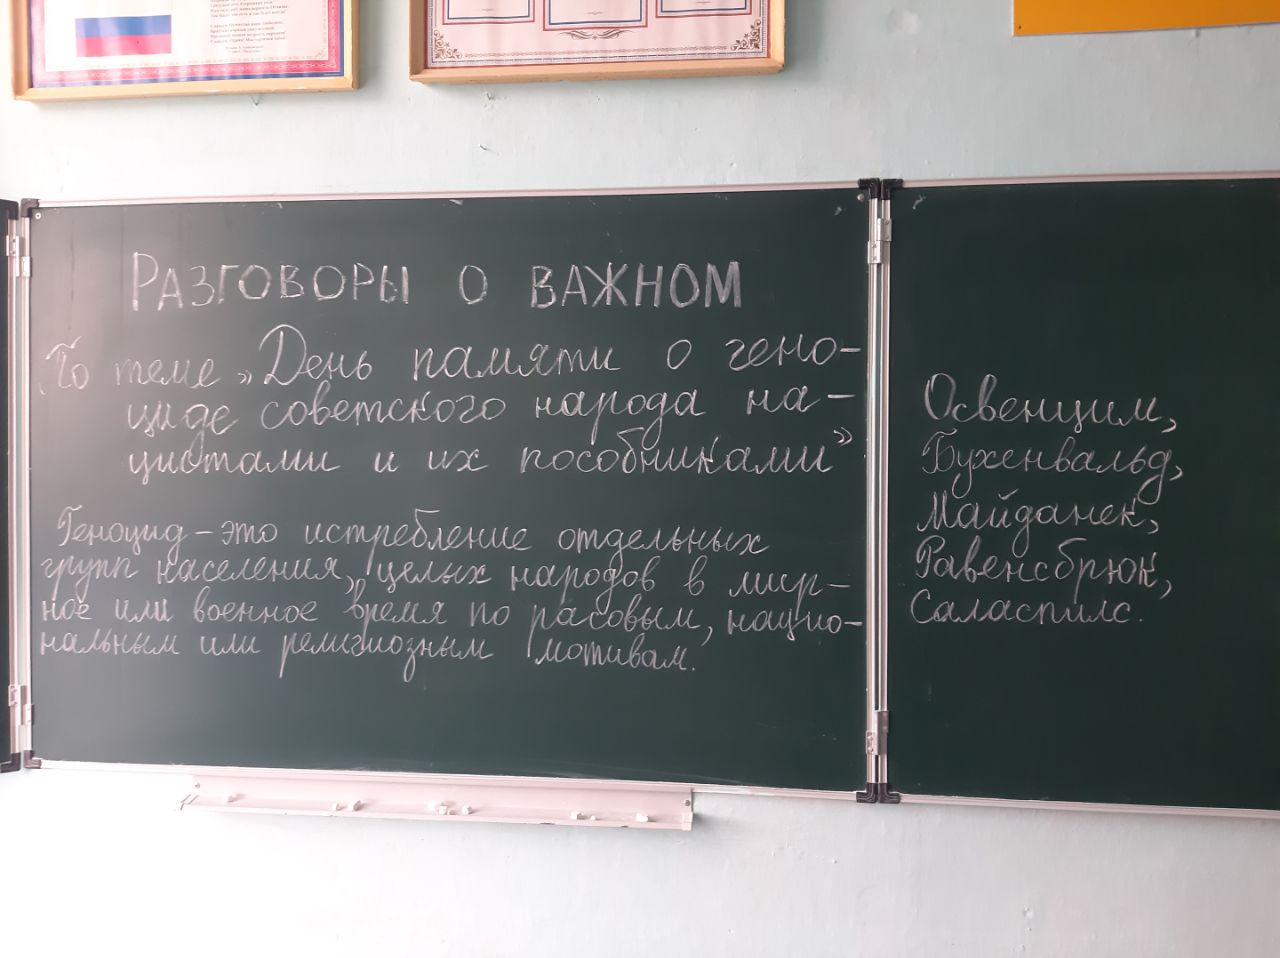 РАЗГОВОРЫ О ВАЖНОМ
По теме „День памяти о гено-
циде советского народа на-
цистами и их пособниками”
Геноцид – это истребление отдельных
групп населения, целых народов в мир-
ное или военное время по расовым, нацио-
нальным или религиозным мотивам.
Освенцим,
Бухенвальд,
Майданек,
Равенсбрюк,
Саласпилс.